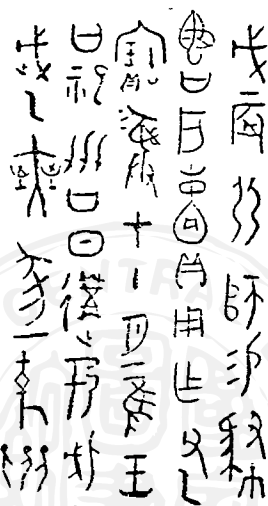 戊辰弜師易肄
貝用乍父乙
寶彝才十月一隹王
廿祀劦日遘于妣戊
武乙奭豕一